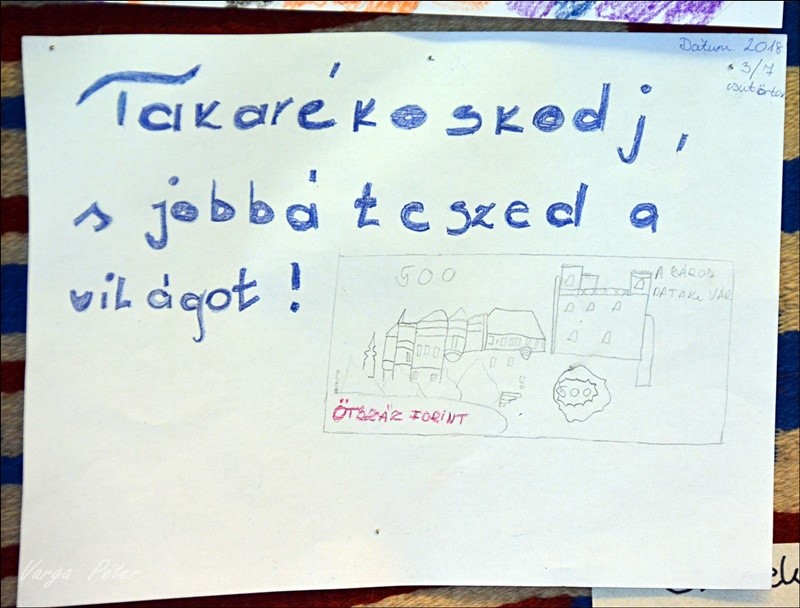 Dátum 2018
3/7
csütörtö
Takarékoskodj,
s jobbá teszed a
világot!
500
A SÁROS
PATAKi VÁR
500
ÖTSZÁZ FORINT
Varga Péter